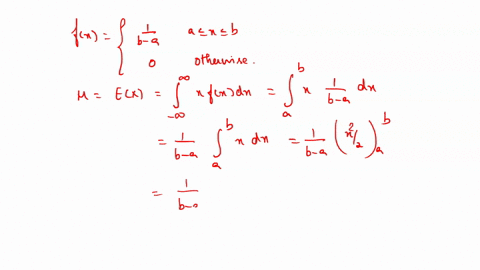 f(x) = { 1/(b-a) a ≤ x ≤ b
0 otherwise.
μ = E(x) = ∫_{-∞}^{∞} x f(x) dx = ∫_a^b x 1/(b-a) dx
= 1/(b-a) ∫_a^b x dx = 1/(b-a) (x²/2)_a^b
= 1/(b-